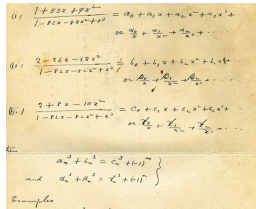 (i) (1 + 53x + 9x²)/(1 - 82x - 82x² + x³) = a₀ + a₁x + a₂x² + a₃x³ +
or α₀/x + α₁/x² + α₂/x³ + ..
(ii) (2 - 26x - 12x²)/(1 - 82x - 82x² + x³) = b₀ + b₁x + b₂x² + b₃x³
or β₀/x + β₁/x² + β₂/x³ + ...
(iii) (2 + 8x - 10x²)/(1 - 82x - 82x² + x³) = c₀ + c₁x + c₂x² + c₃x³ +
or γ₀/x + γ₁/x² + γ₂/x³ + ...
then
aₙ³ + bₙ³ = cₙ³ + (-1)ⁿ }
and αₙ³ + βₙ³ = γₙ³ + (-1)ⁿ }
Examples